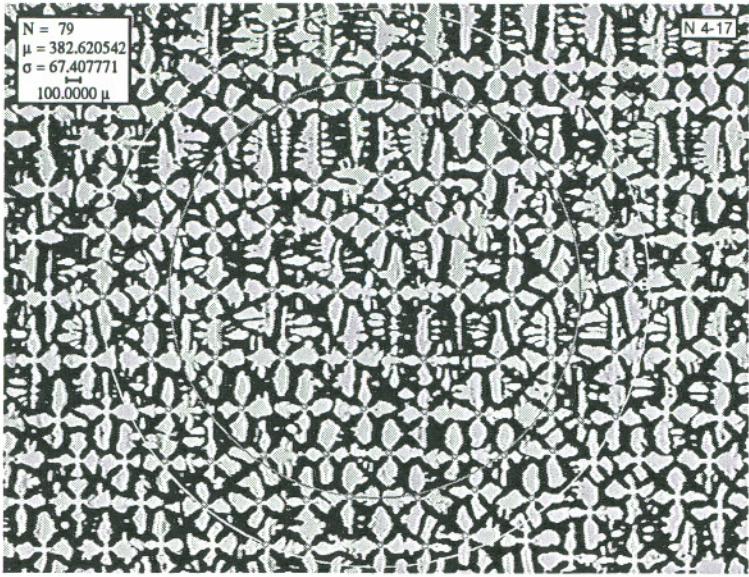 N = 79
μ = 382.620542
σ = 67.407771
100.0000 μ
N 4-17